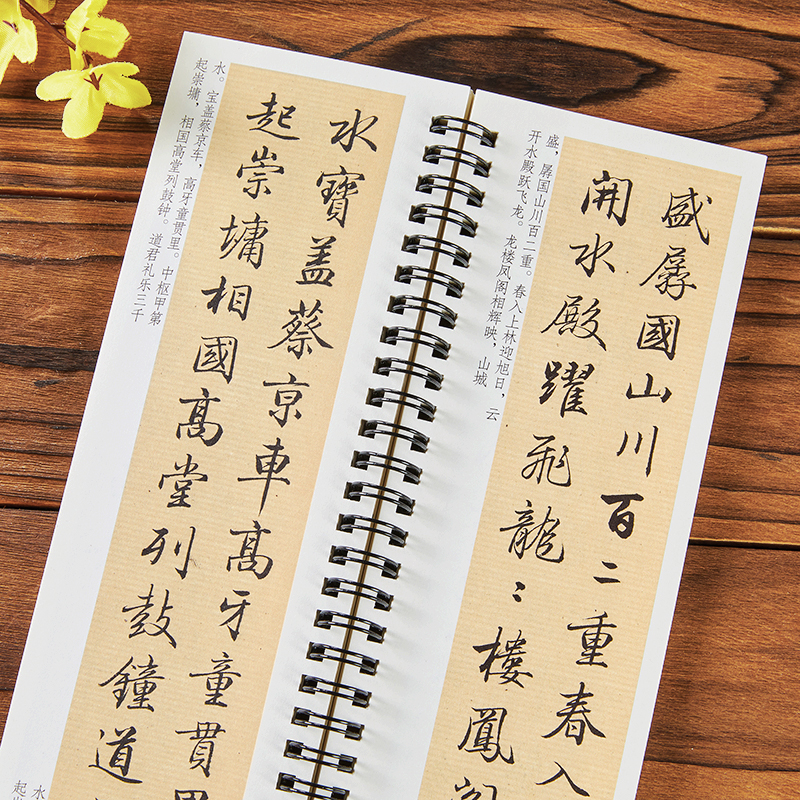 盛孱國山川百二重春入
開水殿躍飛龍〻樓鳳閣
盛，孱国山川百二重。春入上林迎旭日，云
开水殿跃飞龙。龙楼凤阁相辉映，山城
水寶蓋蔡京車高牙童貫里
起崇墉相國高堂列鼓鐘道
水。宝盖蔡京车，高牙童贯里。中枢甲第
起崇墉，相国高堂列鼓钟。道君礼乐三千
水
起